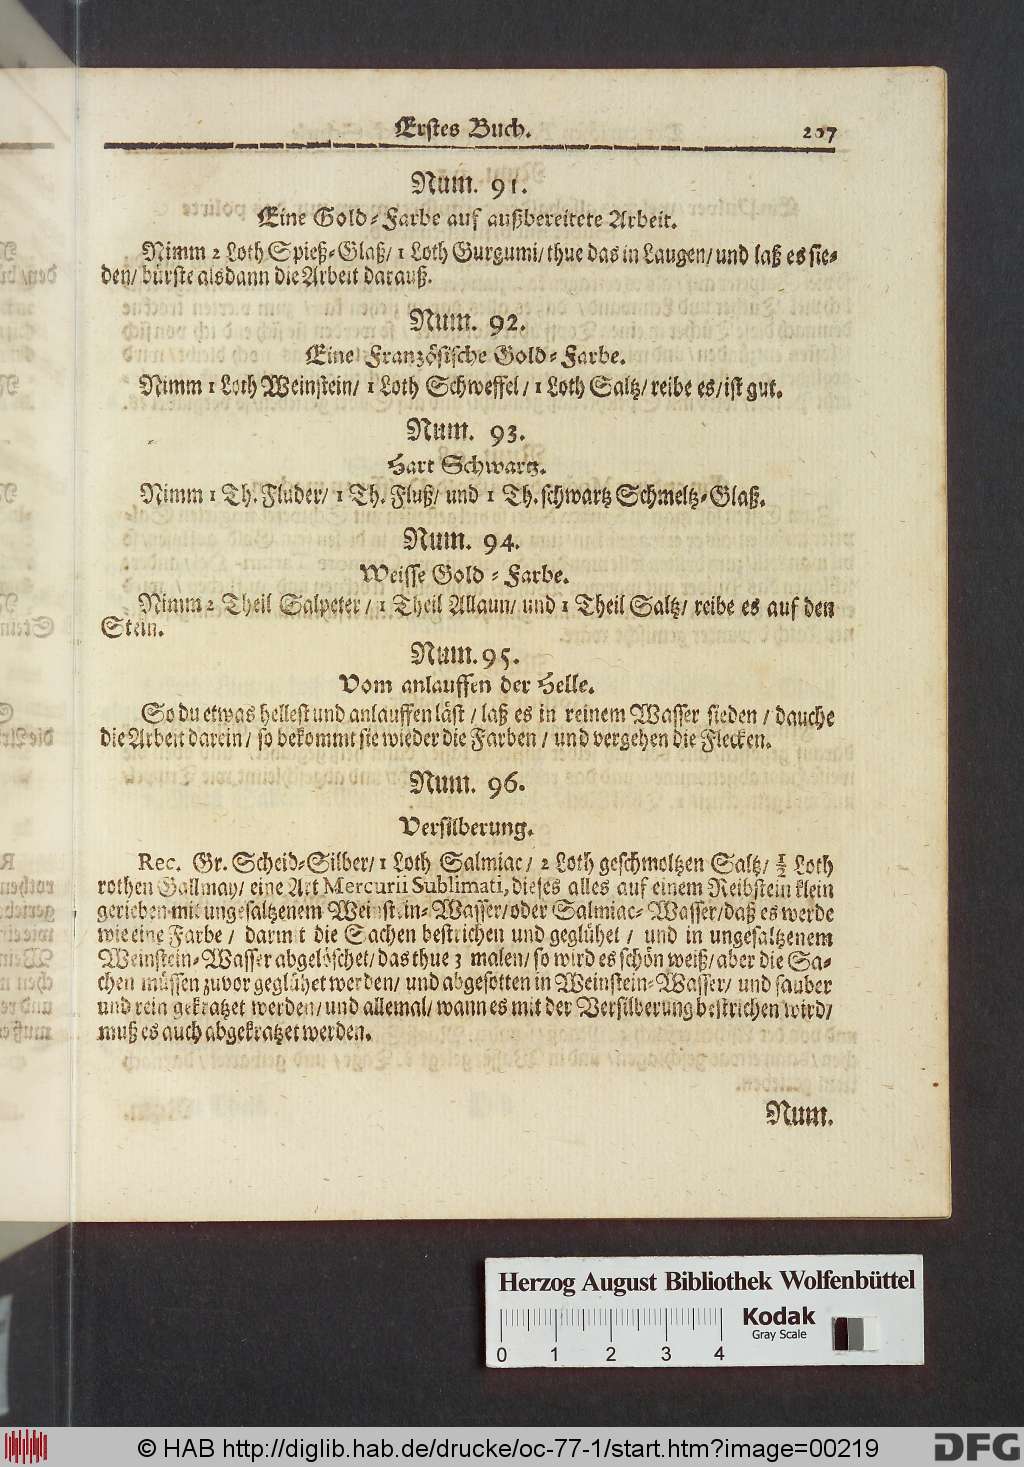 Erstes Buch. 207
Num. 91.
Eine Gold-Farbe auf außbereitete Arbeit.
Nimm 2 Loth Spieß-Glaß/ 1 Loth Gurgumi/ thue das in Laugen/ und laß es sie-
den/ bürste alsdann die Arbeit darauß.
Num. 92.
Eine Französische Gold-Farbe.
Nimm 1 Loth Weinstein/ 1 Loth Schweffel/ 1 Loth Saltz/ reibe es/ ist gut.
Num. 93.
Hart Schwartz.
Nimm 1 Th. Fluder/ 1 Th. Fluß/ und 1 Th. schwartz Schmeltz-Glaß.
Num. 94.
Weisse Gold-Farbe.
Nimm 2 Theil Salpeter/ 1 Theil Allaun/ und 1 Theil Saltz/ reibe es auf den
Stein.
Num. 95.
Vom anlauffen der Helle.
So du etwas hellest und anlauffen läst/ laß es in reinem Wasser sieden/ dauche
die Arbeit darein/ so bekommt sie wieder die Farben/ und vergehen die Flecken.
Num. 96.
Versilberung.
Rec. Gr. Scheid-Silber/ 1 Loth Salmiac/ 2 Loth geschmeltzen Saltz/ ½ Loth
rothen Gallmay/ eine Art Mercurii Sublimati, dieses alles auf einem Reibstein klein
gerieben mit ungesaltzenem Weinstein-Wasser/ oder Salmiac-Wasser/ daß es werde
wie eine Farbe/ darmit die Sachen bestrichen und geglühet/ und in ungesaltzenem
Weinstein-Wasser abgelöschet/ das thue 3 malen/ so wird es schön weiß/ aber die Sa-
chen müssen zuvor geglühet werden/ und abgesotten in Weinstein-Wasser/ und sauber
und rein gekratzet werden/ und allemal/ wann es mit der Versilberung bestrichen wird/
muß es auch abgekratzet werden.
Num.
Herzog August Bibliothek Wolfenbüttel
Kodak
Gray Scale
0 1 2 3 4
© HAB http://diglib.hab.de/drucke/oc-77-1/start.htm?image=00219
DFG